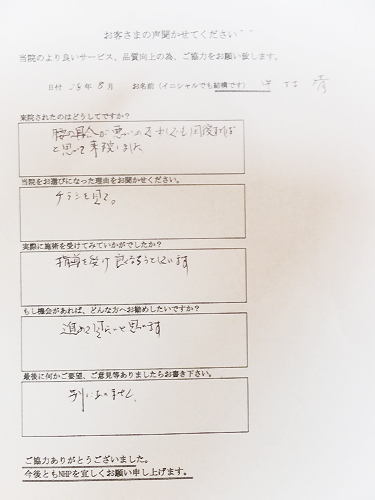 お客さまの声聞かせてください
当院のより良いサービス、品質向上の為、ご協力をお願い致します。
日付 28年 8月 お名前（イニシャルでも結構です）
来院されたのはどうしてですか？
腰の具合が悪いので少しでも回復すれば
と思って来院しました
当院をお選びになった理由をお聞かせください。
チラシを見て。
実際に施術を受けてみていかがでしたか？
指導を受け良くなろうとしています
もし機会があれば、どんな方へお勧めしたいですか？
進めて見たいと思います
最後に何かご要望、ご意見等ありましたらお書き下さい。
別にありません。
ご協力ありがとうございました。
今後ともNHPを宜しくお願い申し上げます。